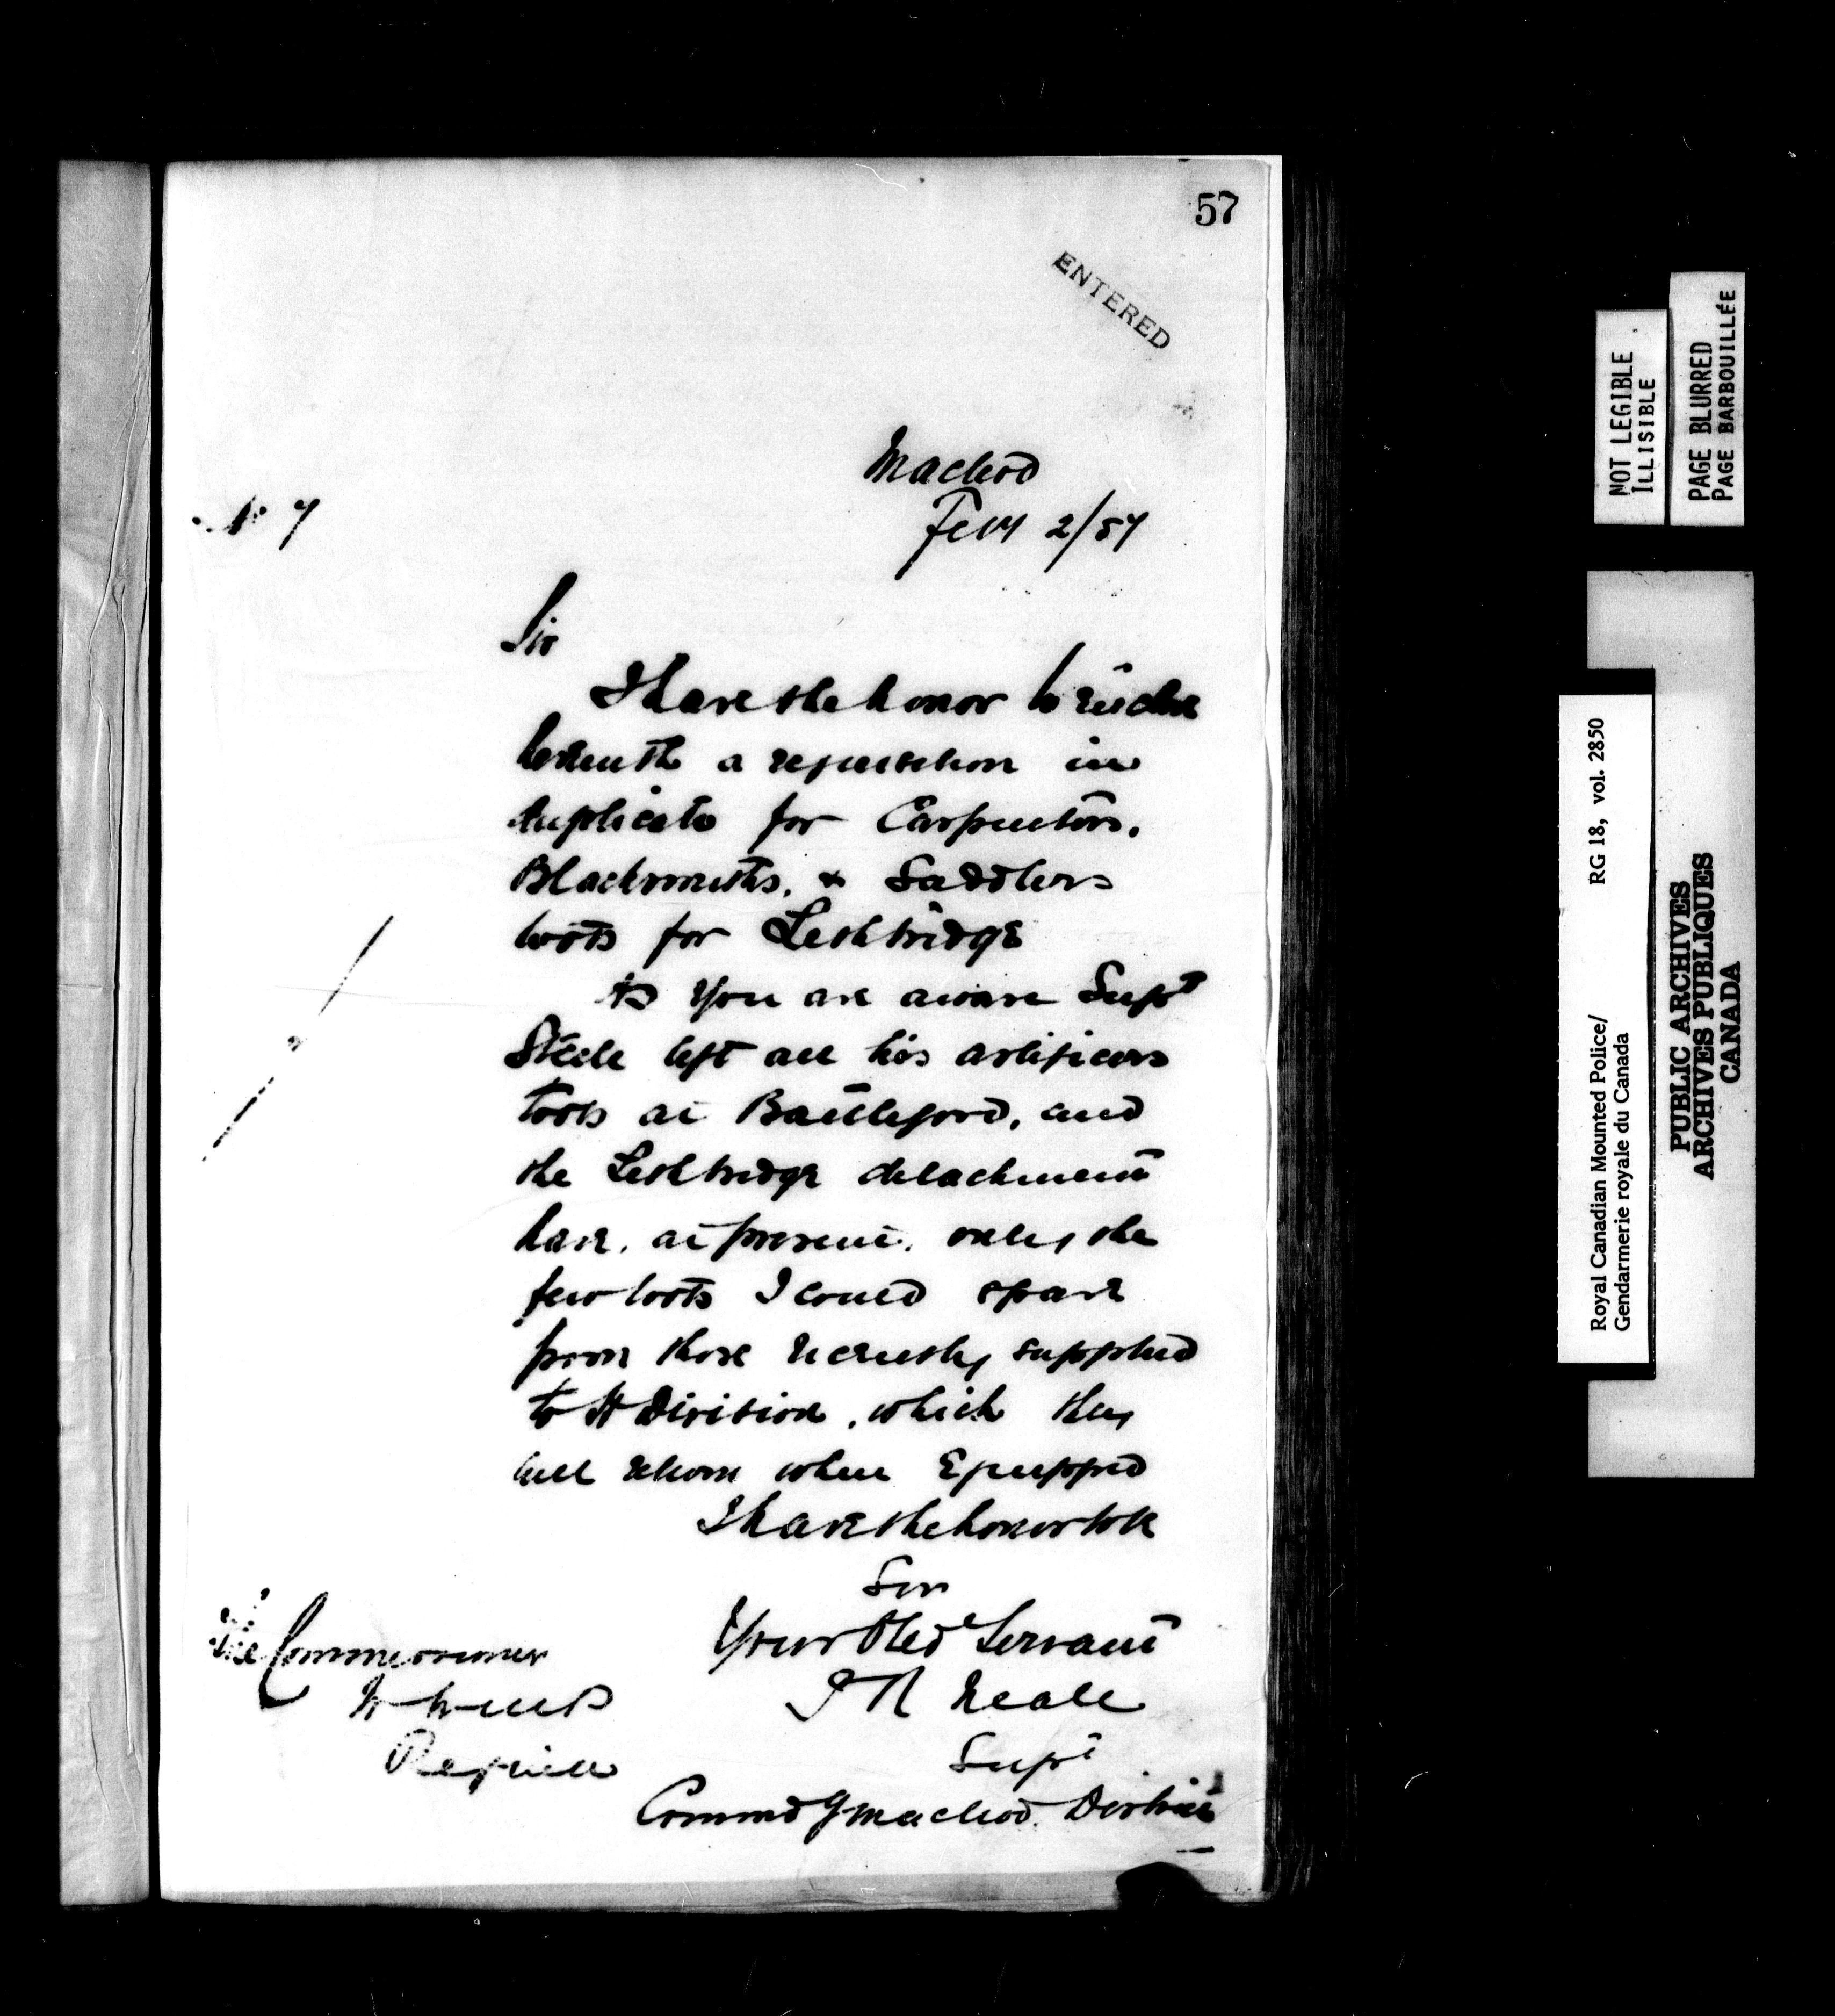 57
ENTERED
Macleod
Feby 2/87
No 7
Sir
I have the honor to enclose
herewith a requisition in
duplicate for Carpenters,
Blacksmiths, & Saddlers
tools for Lethbridge
As you are aware Supt
Steele left all his artificers
tools at Battleford, and
the Lethbridge detachment
have, at present, only the
few tools I could spare
from those recently supplied
to H Division, which they
will return when Equipped
I have the honor to be
Sir
Your Obed Servant
P R Neale
Supt
Commdg Macleod District
The Commissioner
N W M P
Regina
NOT LEGIBLE
ILLISIBLE
PAGE BLURRED
PAGE BARBOUILLÉE
Royal Canadian Mounted Police/ RG 18, vol. 2850
Gendarmerie royale du Canada
PUBLIC ARCHIVES
ARCHIVES PUBLIQUES
CANADA